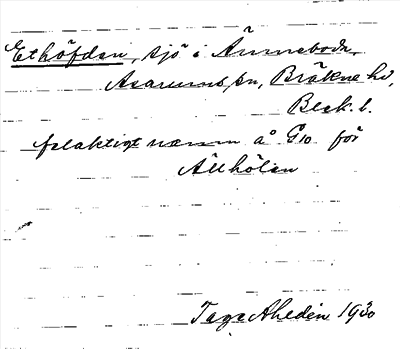 Ethöfden, sjö i Ännebode,
Asarums sn, Bräkne hd,
Blek. l.
felaktigt namn å G10 för
Ällhölen
Tage Ahldén 1930